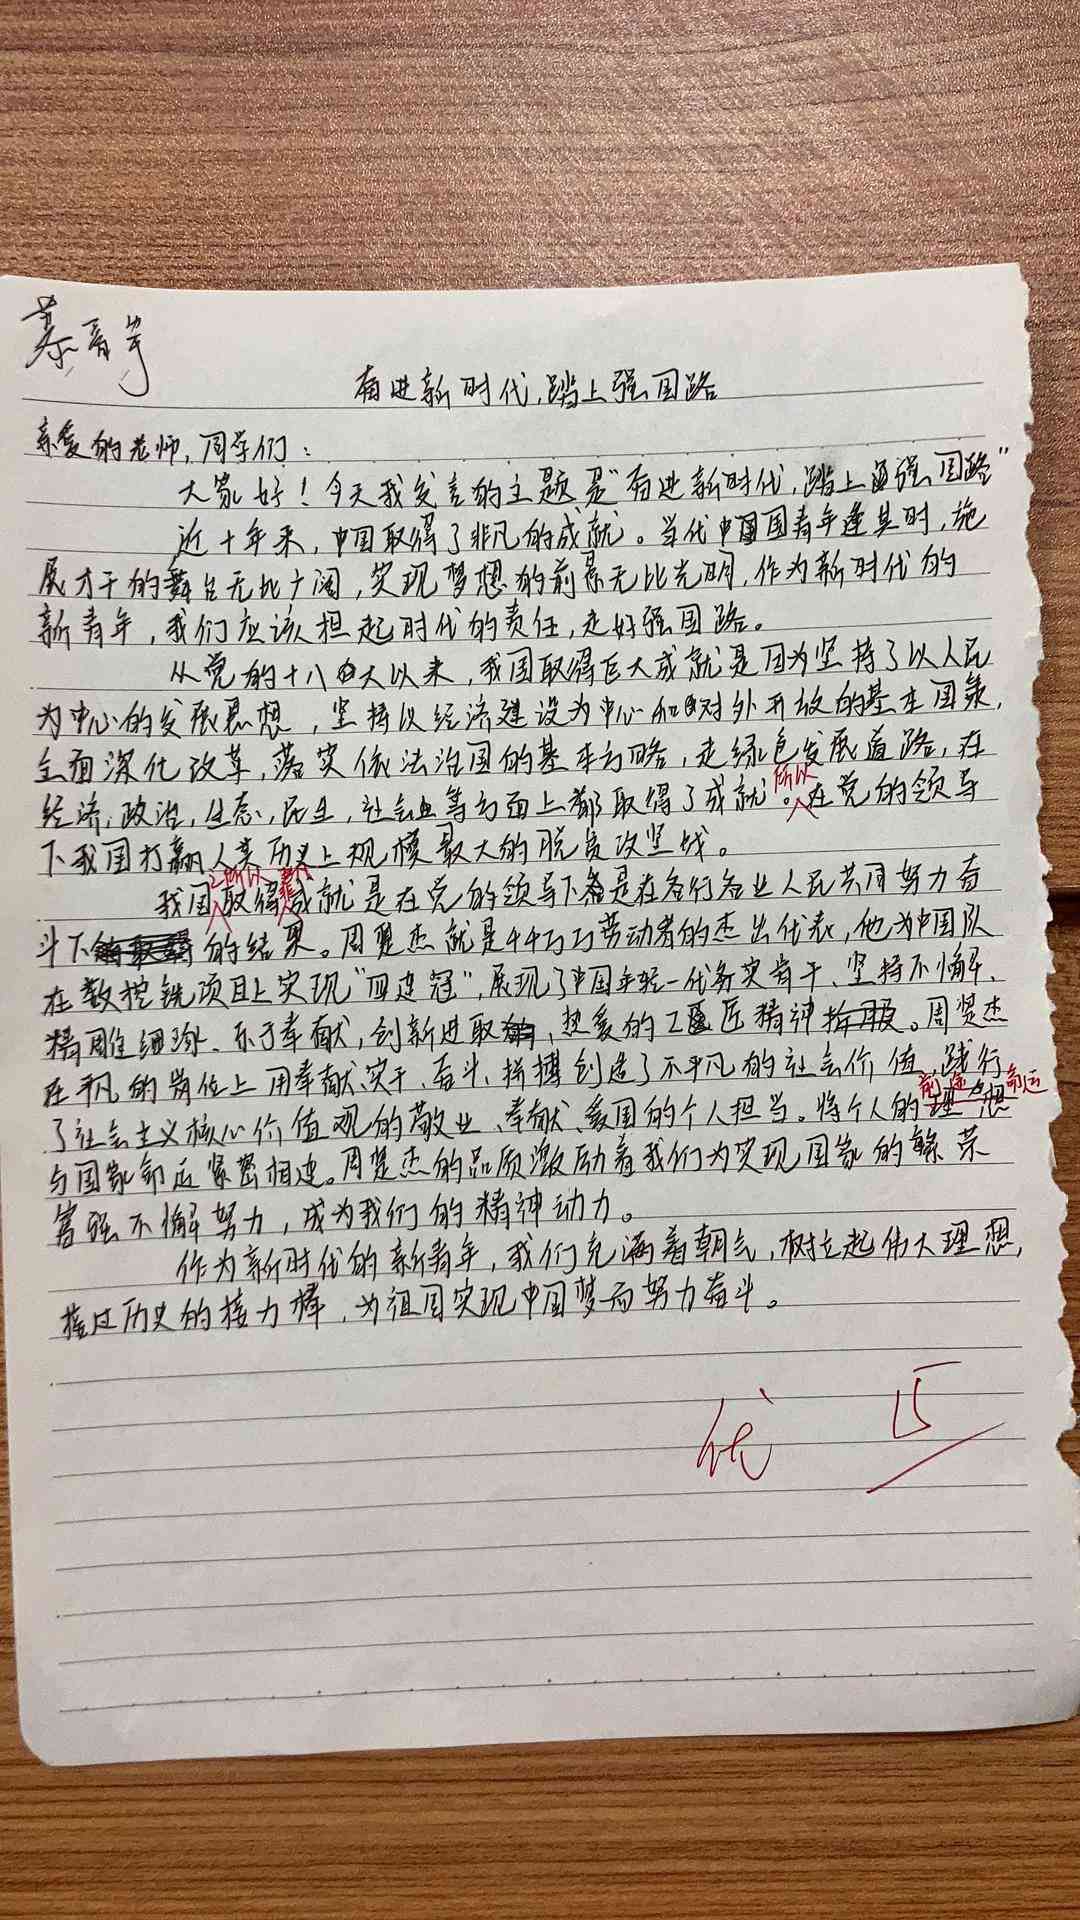 奋进新时代,踏上强国路
亲爱的老师,同学们:
大家好!今天我发言的主题是"奋进新时代,踏上强国路"
近十年来,中国取得了非凡的成就。当代中国青年逢其时,施
展才干的舞台无比广阔,实现梦想的前景无比光明,作为新时代的
新青年,我们应该担起时代的责任,走好强国路。
从党的十八大以来,我国取得巨大成就是因为坚持了以人民
为中心的发展思想,坚持以经济建设为中心和对外开放的基本国策,
全面深化改革,落实依法治国的基本方略,走绿色发展道路,在
所以
经济,政治,生态,民生,社会等方面上都取得了成就。在党的领导
下我国打赢人类历史上规模最大的脱贫攻坚战。
之所以 非凡
我国取得成就是在党的领导下是在各行各业人民共同努力奋
斗下的结果。周楚杰就是千千万万劳动者的杰出代表,他为中国队
在数控铣项目上实现"四连冠",展现了中国年轻一代务实肯干、坚持不懈、
精雕细琢、乐于奉献,创新进取,热爱的工匠精神。周楚杰
在平凡的岗位上用奉献、实干、奋斗、拼搏创造了不平凡的社会价值,践行
前途 命运
了社会主义核心价值观的敬业、奉献、爱国的个人担当。将个人的理想
与国家命运紧密相连。周楚杰的品质激励着我们为实现国家的繁荣
富强不懈努力,成为我们的精神动力。
作为新时代的新青年,我们充满着朝气,树立起伟大理想,
接过历史的接力棒,为祖国实现中国梦而努力奋斗。
优 15